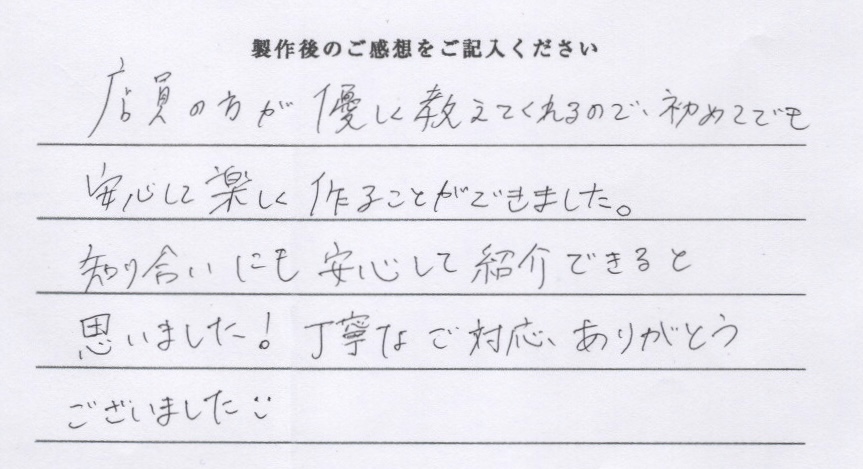 製作後のご感想をご記入ください
店員の方が優しく教えてくれるので、初めてでも
安心して楽しく作ることができました。
知り合いにも安心して紹介できると
思いました！丁寧なご対応、ありがとう
ございました